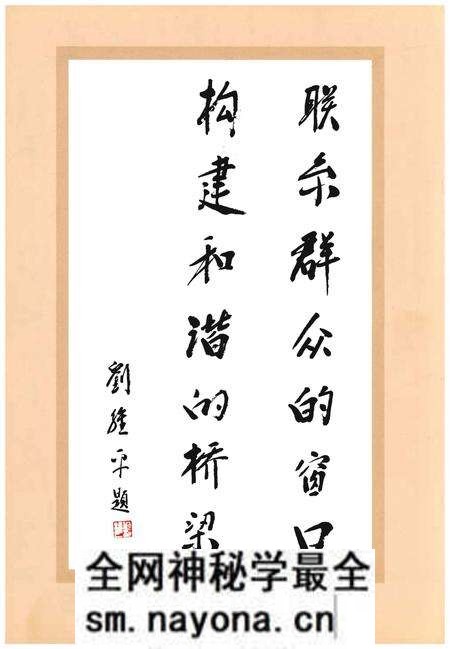 联系群众的窗口
构建和谐的桥梁
劉維平題
全网神秘学最全
sm.nayona.cn